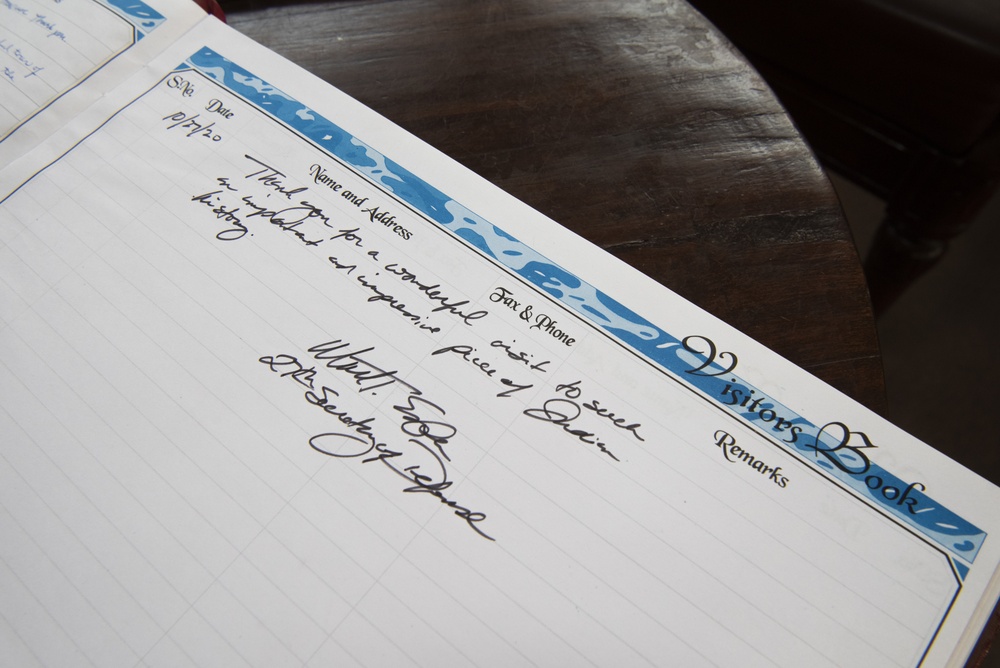 Visitors Book
S.No.
Date
Name and Address
Fax & Phone
Remarks
10/27/20
Thank you for a wonderful visit to such
an important and impressive piece of Indian
history.
Mark T. Esper
27th Secretary of Defense